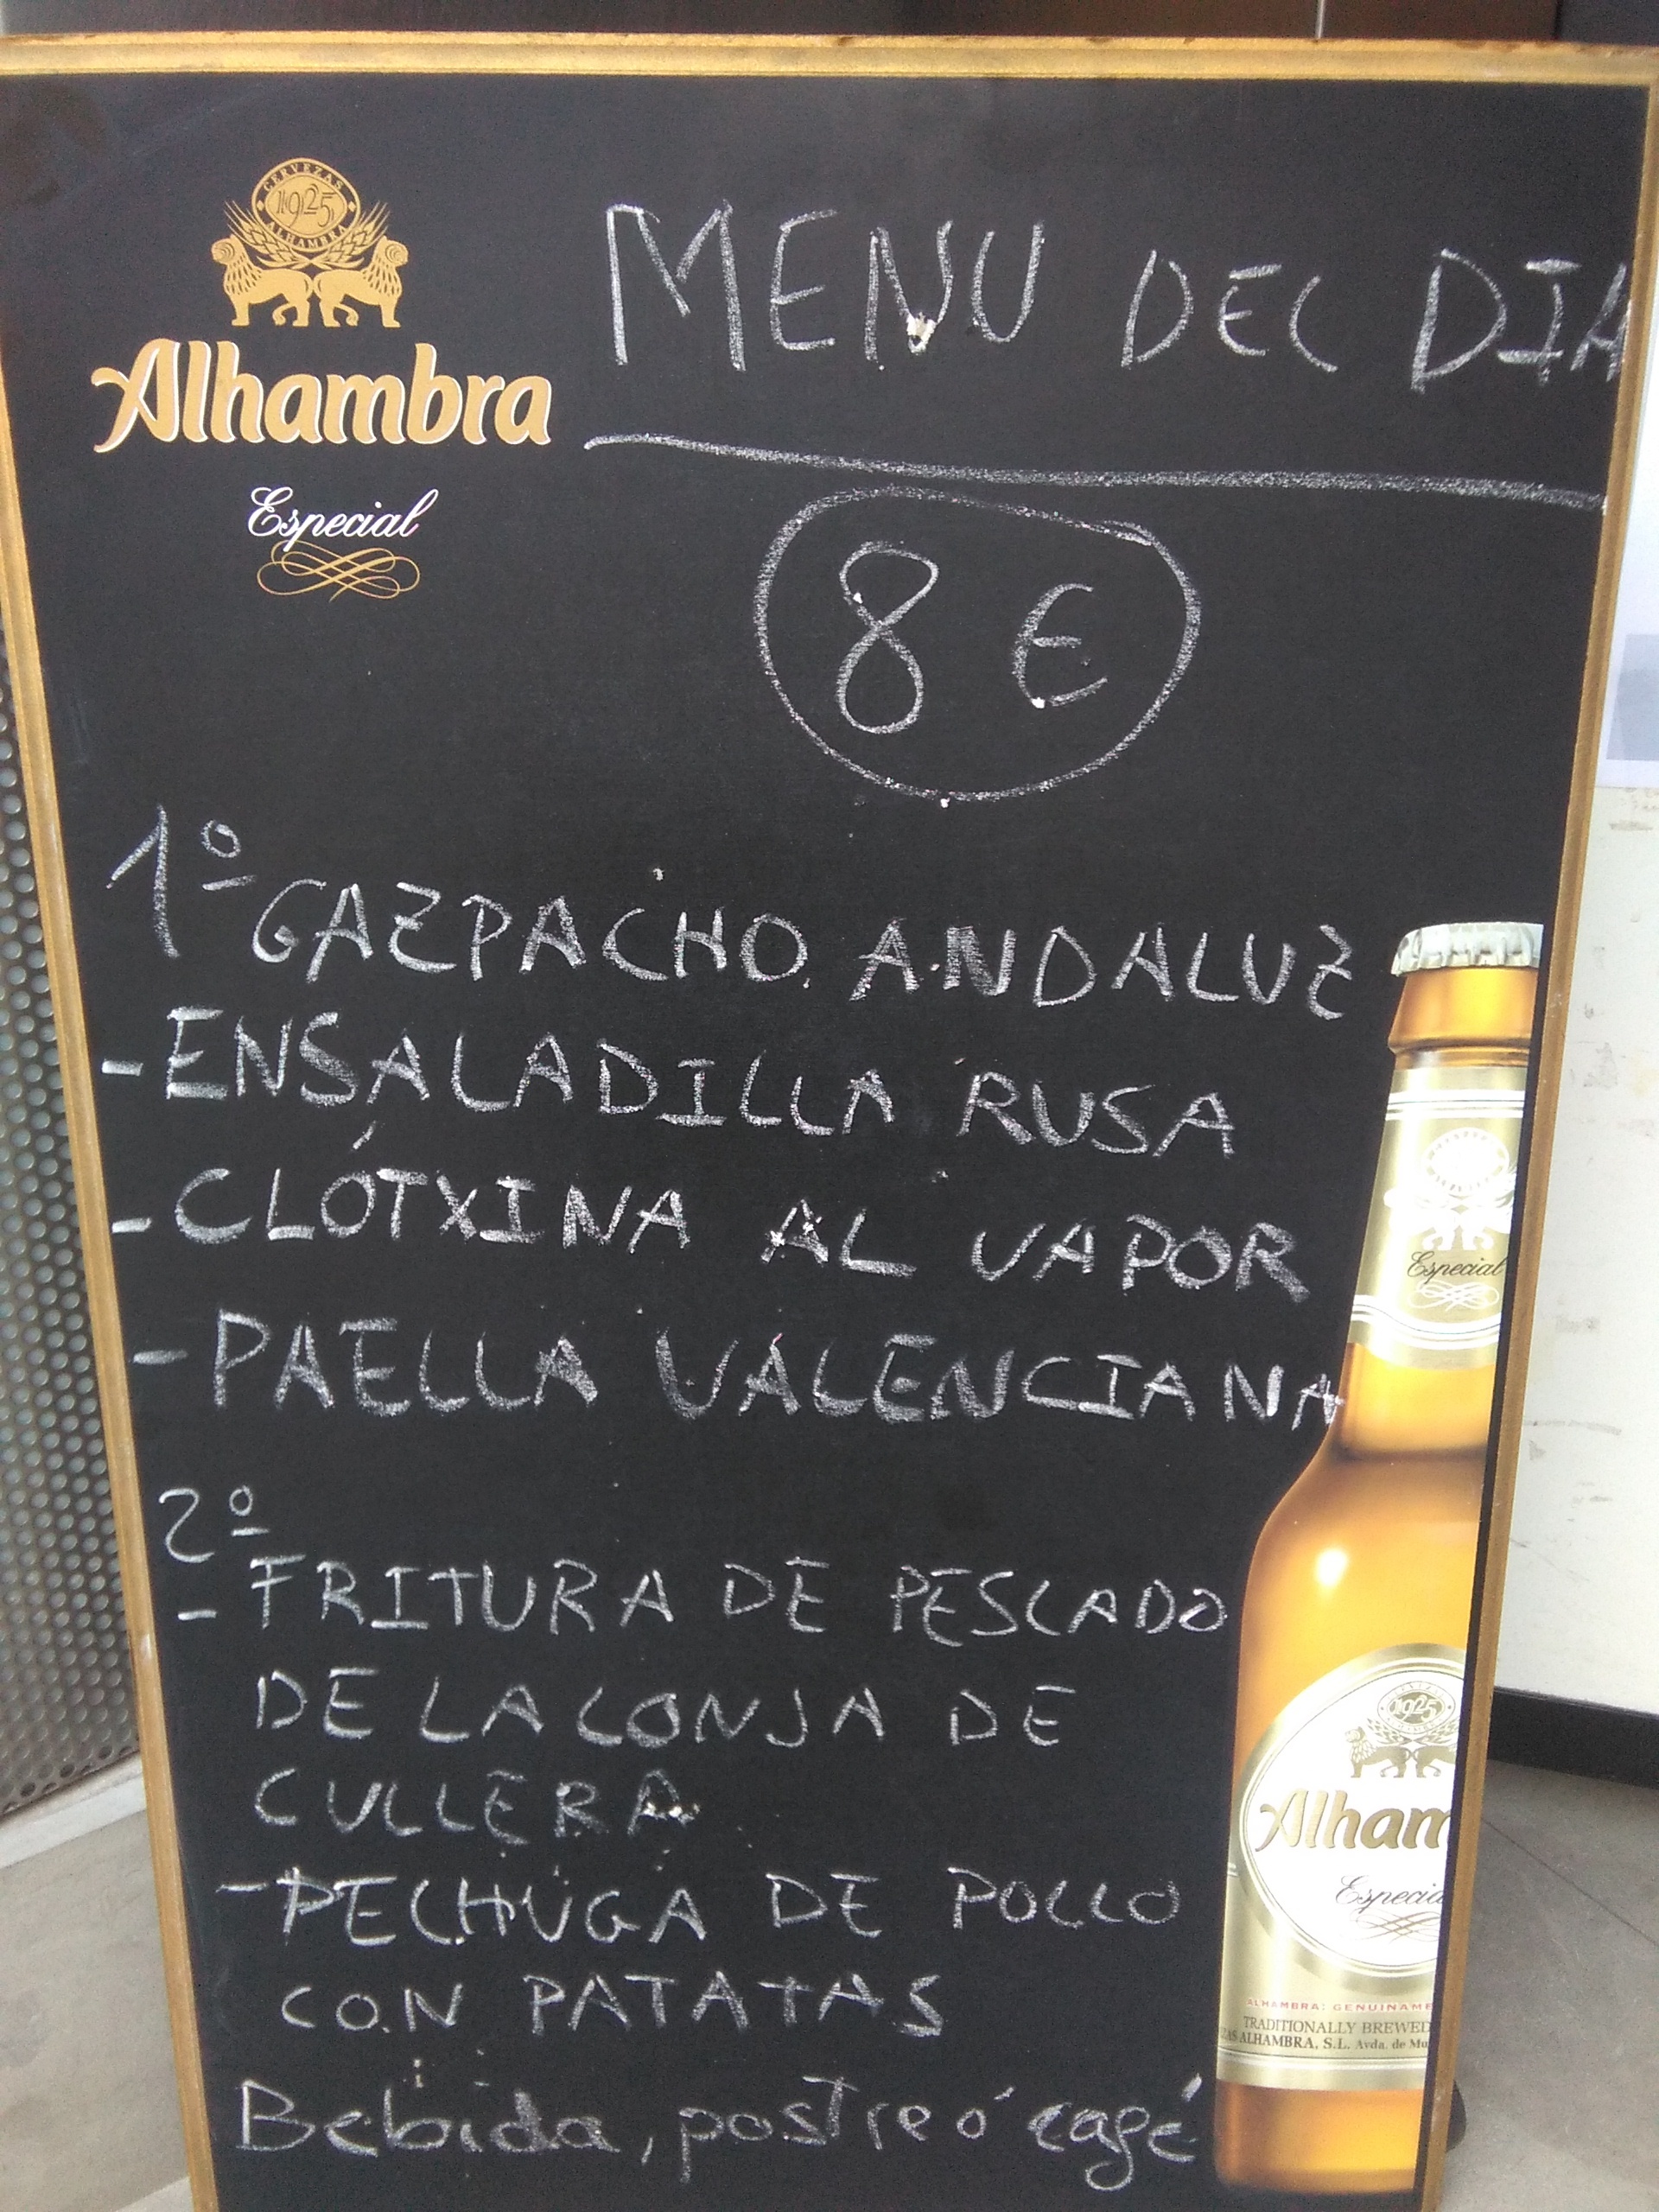 CERVEZAS
1925
ALHAMBRA
Alhambra
Especial
MENU DEL DÍA
8 €
1º GAZPACHO ANDALUZ
- ENSALADILLA RUSA
- CLÓTXINA AL VAPOR
- PAELLA VALENCIANA
2º
- FRITURA DE PESCADO
DE LA LONJA DE
CULLERA
- PECHUGA DE POLLO
CON PATATAS
Bebida, postre ó café
Especial
1925
Alham
Especia
ALHAMBRA: GENUINAME
TRADITIONALLY BREWED
ZAS ALHAMBRA, S.L. Avda. de Mu